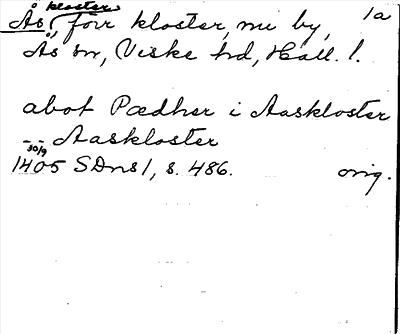 Ås kloster, förr kloster, nu by, 1a
Ås sn, Viske hd, Hall. l.
abot Pædher i Aaskloster
-"- Aaskloster
30/9
1405 SDns 1, s. 486. orig.